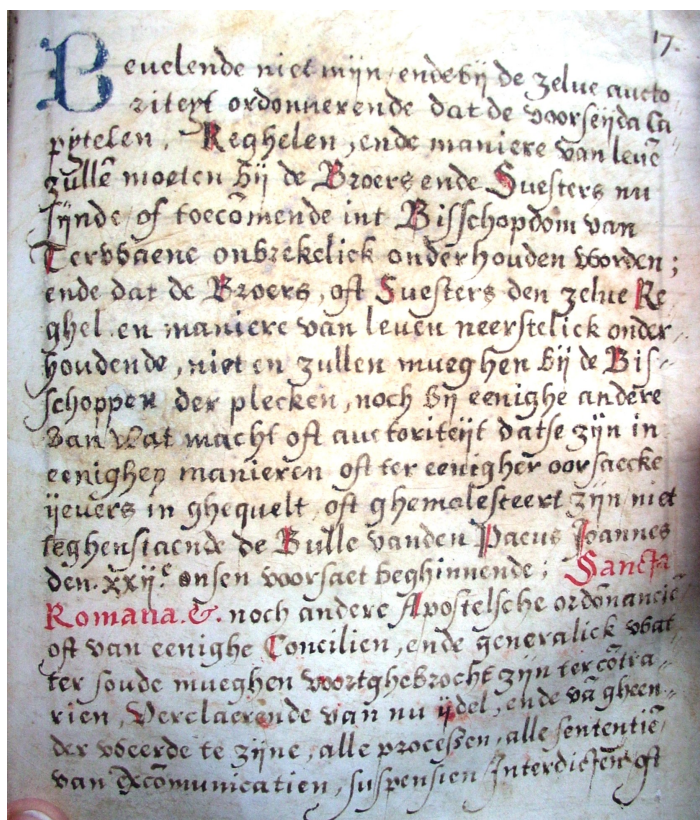 17.
Bevelende niet mijn, ende bij de zelve aucto„
riteyt ordonnerende dat de voorseijda Ca„
pytelen, Reghelen, ende maniere van levē
zullē moeten bij de Broers ende Suesters nu
sijnde of toecōmende int Bisschopdom van
Tervvaene onbrekelick onderhouden worden;
ende dat de Broers, oft Suesters den zelve Re
ghel en maniere van leven neerstelick onder„
houdende, niet en zullen mueghen bij de Bis„
schoppen der plecken, noch bij eenighe andere
van wat macht oft auctoriteijt datse zijn in
eenighen manieren oft ter eenigher oorsaecke
ijevers in ghequelt, oft ghemolesteert zijn niet
teghenstaende de Bulle vanden Paeus Joannes
den .xxij.ᵉ onsen voorsaet beghinnende; Sancta
Romana.&. noch andere Apostelsche ordōnanciē
oft van eenighe Concilien, ende generalick wat
ter soude mueghen voortghebrocht zijn ter cōtra„
rien, Verclaerende van nu ijdel, ende vā gheen„
der voeerde te zijne, alle processen, alle sententiē
van Excōmunicatien, suspensien Interdicten oft